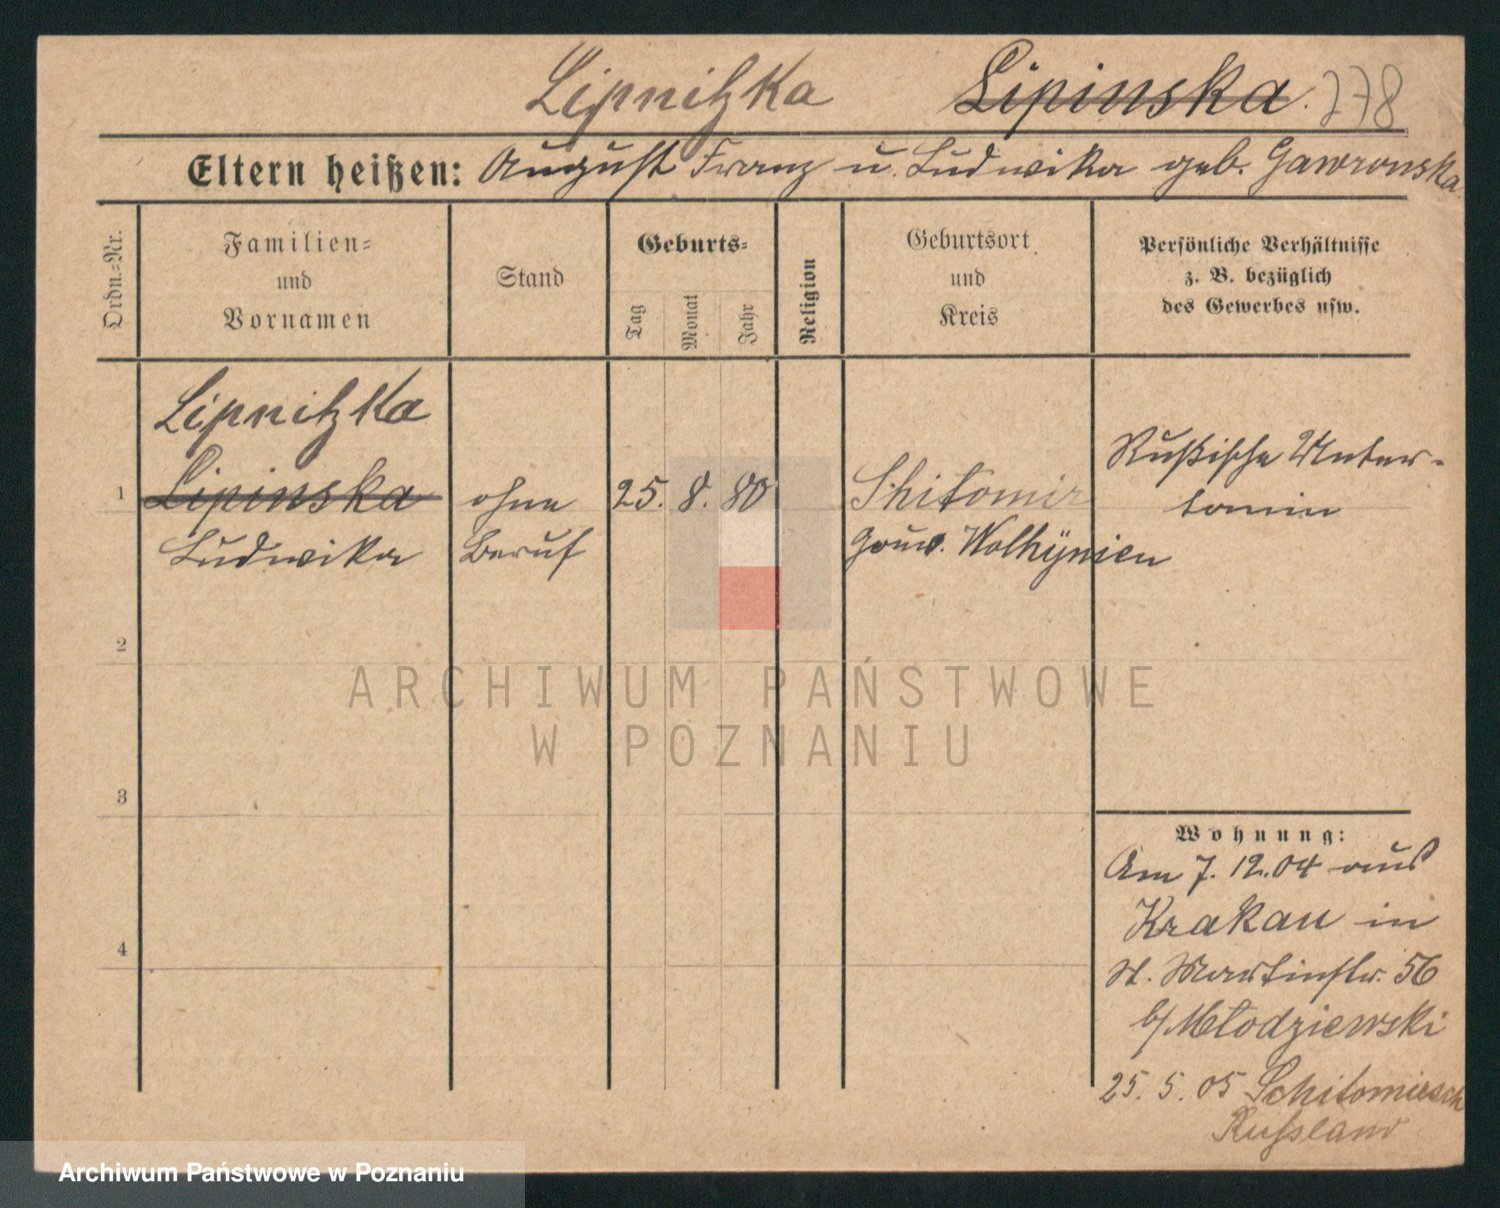 Lipnitzka Lipinska. 778
Eltern heißen: August Franz u. Ludwika geb. Gawronska
Ordn.-Nr.
Familien-
und
Vornamen
Stand
Geburts-
Tag
Monat
Jahr
Religion
Geburtsort
und
Kreis
Persönliche Verhältnisse
z. B. bezüglich
des Gewerbes usw.
Lipnitzka
1 Lipinska
Ludwika
ohne
Beruf
25. 8. 80
Shitomir
Gouv. Wolhÿnien
Rußische Unter-
tanin
2
3
4
Wohnung:
Am 7. 12. 04 aus
Krakau in
St. Martinstr. 56
b/ Młodziewski
25. 5. 05 Schitomirsch
Russland
ARCHIWUM PAŃSTWOWE
W POZNANIU
Archiwum Państwowe w Poznaniu